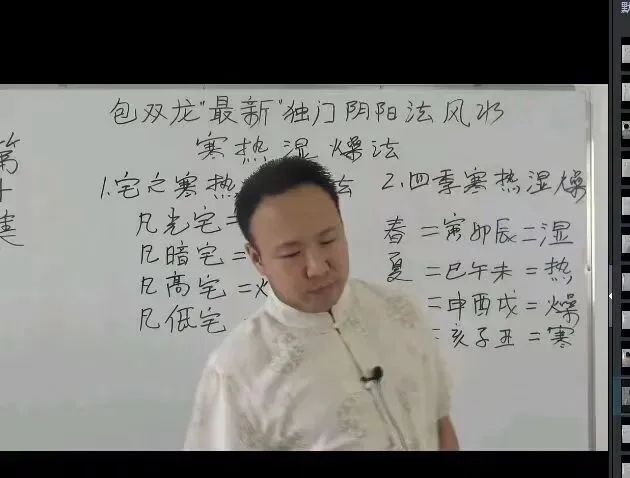 包双龙"最新"独门阴阳法风水
寒热湿燥法
第十集
1.宅之寒热 法
凡光宅=
凡暗宅=
凡高宅=火
凡低宅
2.四季寒热湿燥
春=寅卯辰=湿
夏=巳午未=热
=申酉戌=燥
=亥子丑=寒